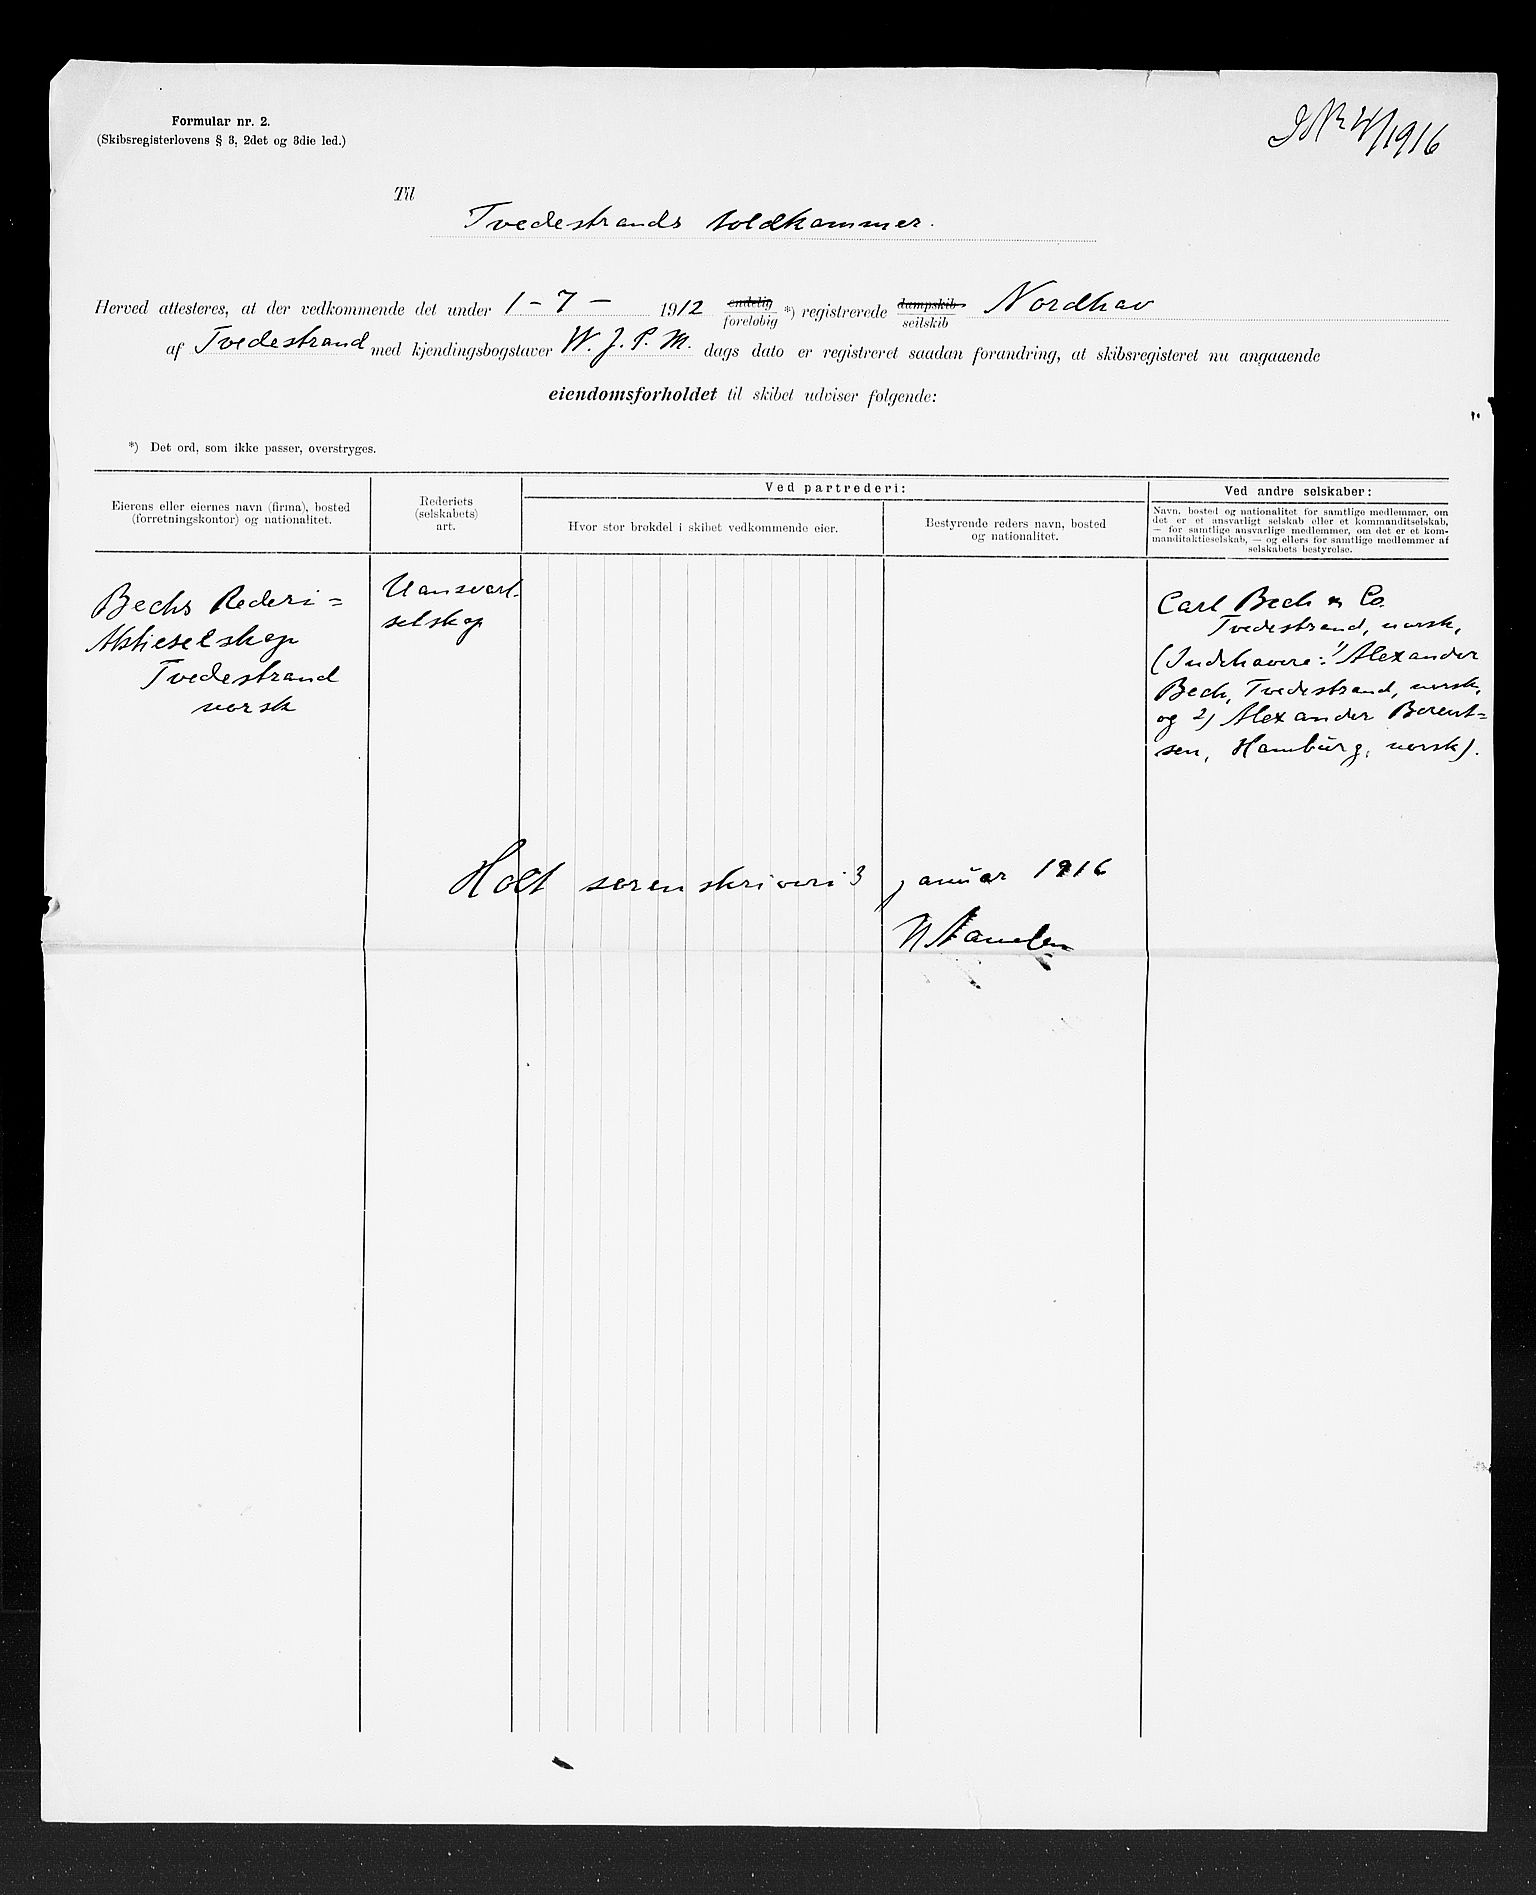 Formular nr. 2.
(Skibsregisterlovens § 3, 2det og 3die led.)
J Nr 4/1916
Til
Tvedestrands toldkammer.
Herved attesteres, at der vedkommende det under 1 - 7 - 1912 endelig foreløbig *) registrerede dampskib seilskib Nordhav
af Tvedestrand med kjendingsbogstaver W. J. P. M. dags dato er registreret saadan forandring, at skibsregisteret nu angaaende
eiendomsforholdet til skibet udviser følgende:
*) Det ord, som ikke passer, overstryges.
Eierens eller eiernes navn (firma), bosted
(forretningskontor) og nationalitet.
Rederiets
(selskabets)
art.
Ved partrederi:
Hvor stor brøkdel i skibet vedkommende eier.
Bestyrende reders navn, bosted
og nationalitet.
Ved andre selskaber:
Navn, bosted og nationalitet for samtlige medlemmer, om
det er et ansvarligt selskab eller et kommanditselskab,
— for samtlige ansvarlige medlemmer, om det er et kom-
manditaktieselskab, — og ellers for samtlige medlemmer af
selskabets bestyrelse.
Bechs Rederi=
Aktieselskap
Tvedestrand
norsk
Uansvarl.
selskap
Carl Bech & Co.
Tvedestrand, norsk,
(Indehavere: 1) Alexander
Bech, Tvedestrand, norsk,
og 2) Alexander Berent=
sen, Hamburg, norsk).
Holt sorenskriveri 3 januar 1916